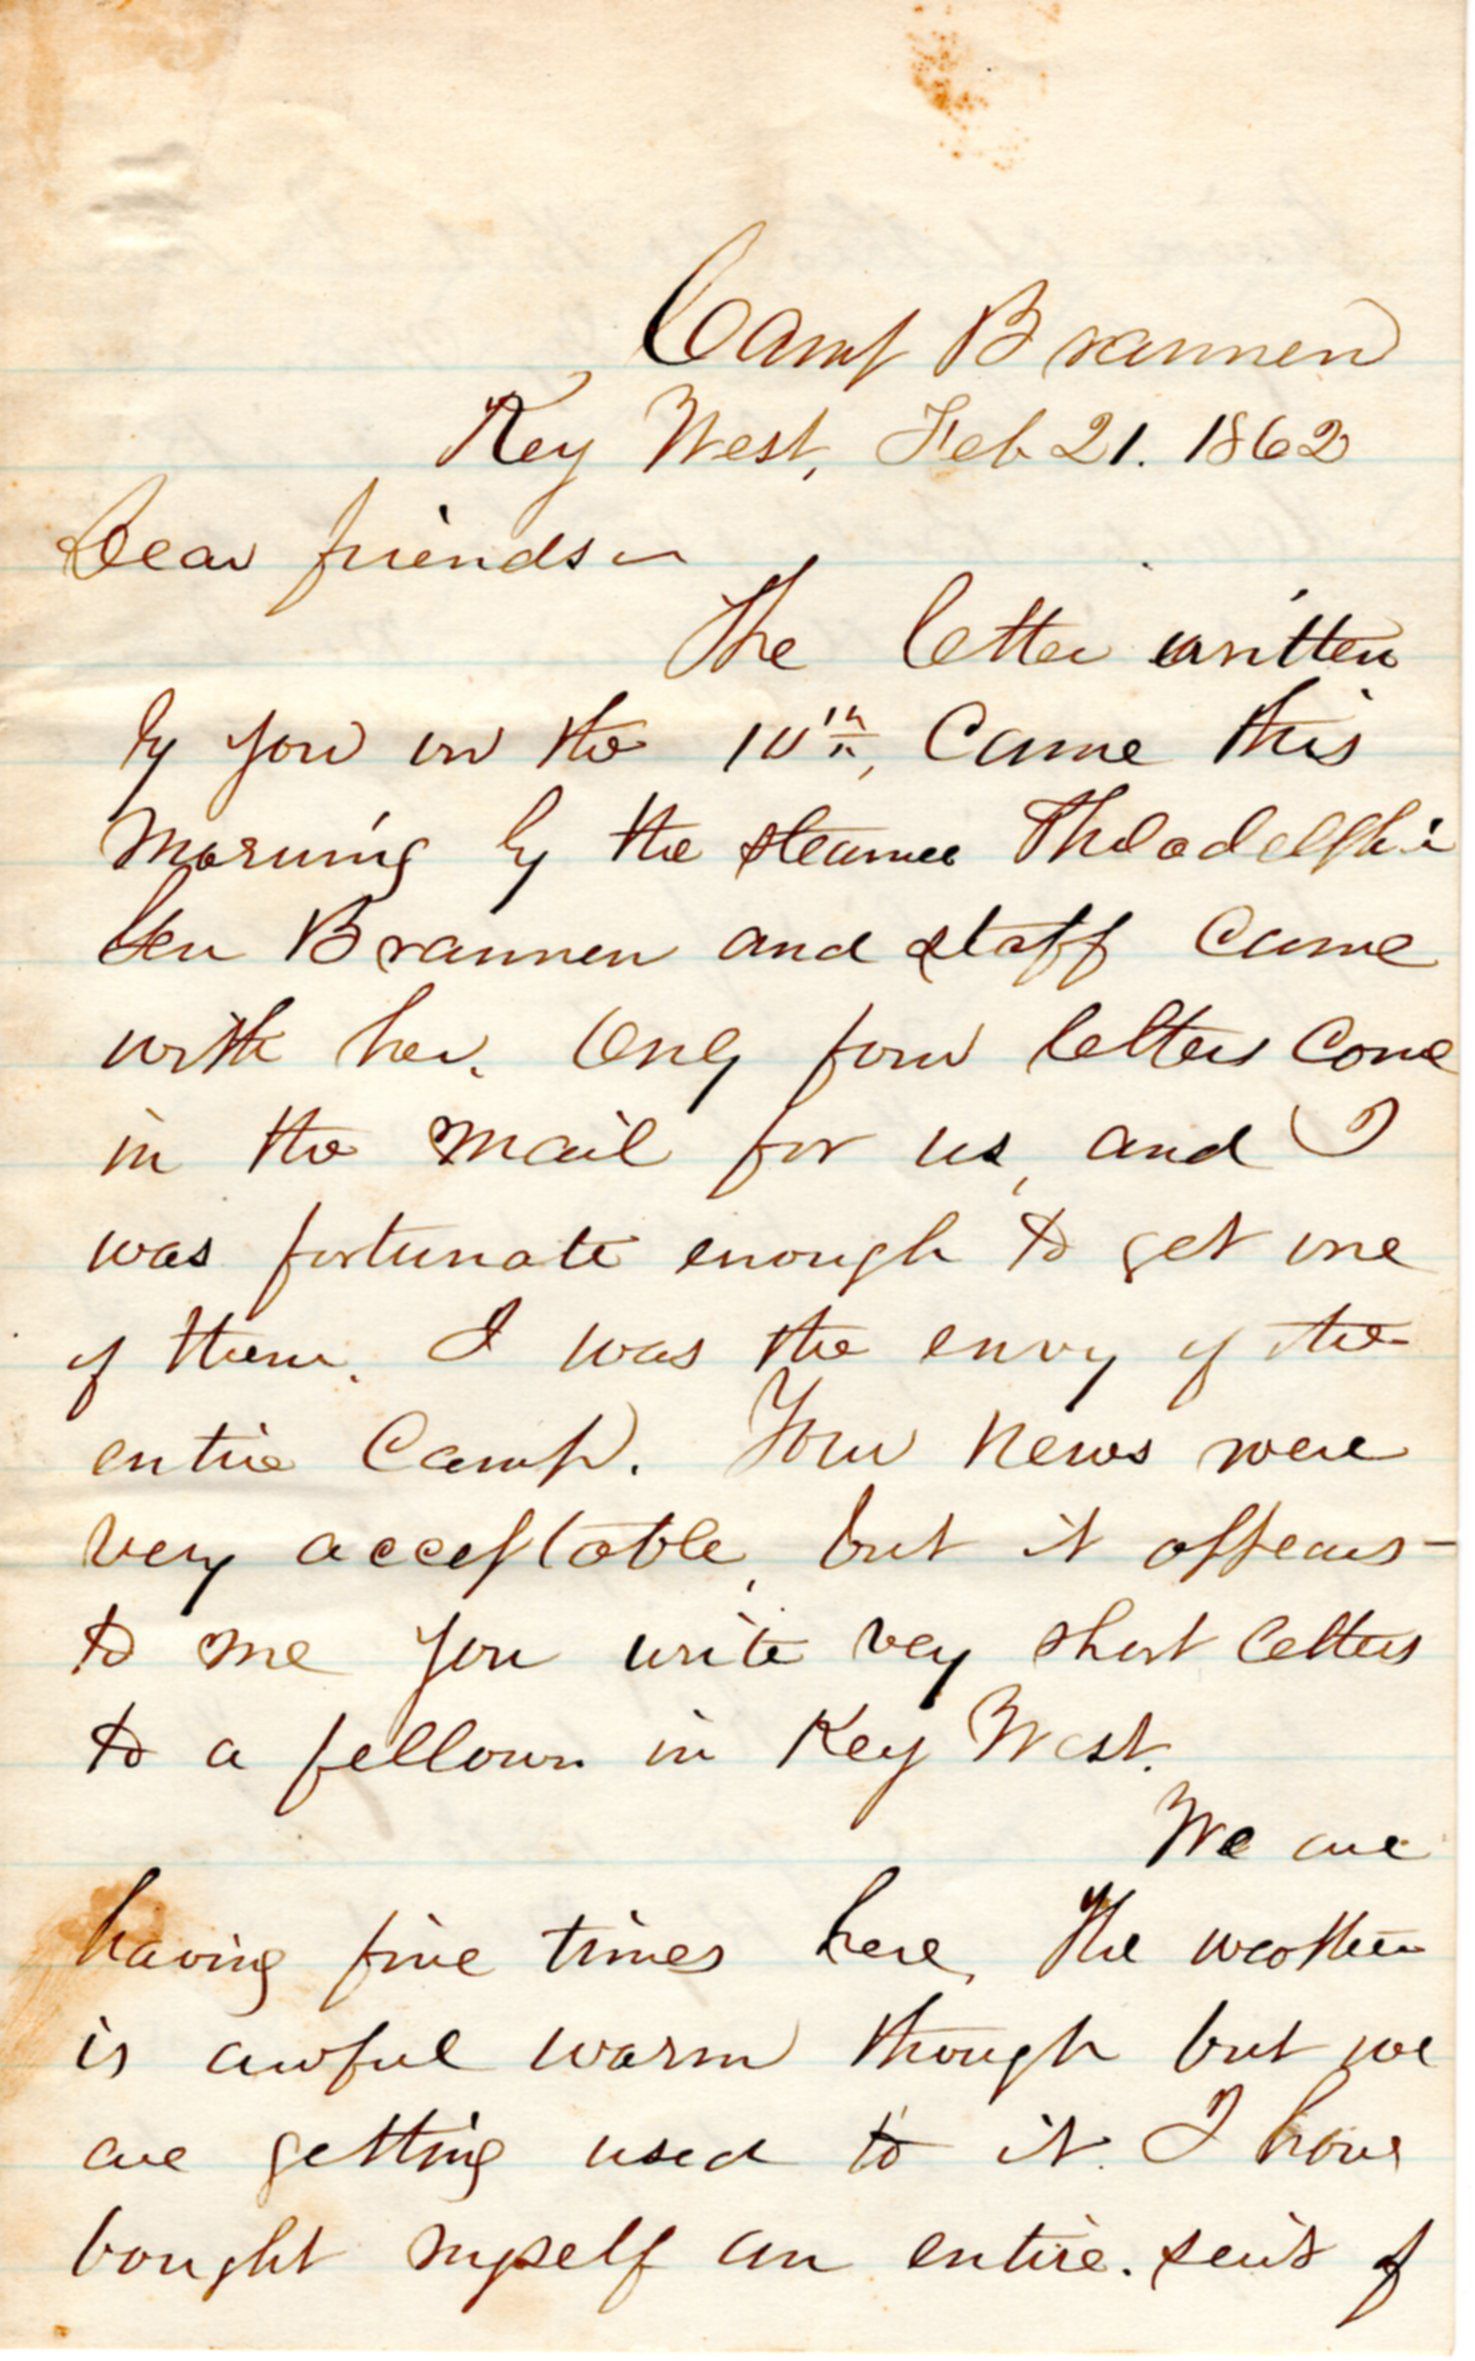 Camp Brannen
Key West, Feb 21. 1862
Dear friends —
The letter written
by you on the 10th, Came this
morning by the steamer Philadelphi
Gen Brannen and staff came
with her. Only four letters come
in the mail for us, and I
was fortunate enough to get one
of them. I was the envy of the
entire Camp. Your news were
very acceptable, but it appears -
to me you write very short letters
to a fellow in Key West.
We are
having fine times here, The weather
is awful warm though but we
are getting used to it. I have
bought myself an entire suit of